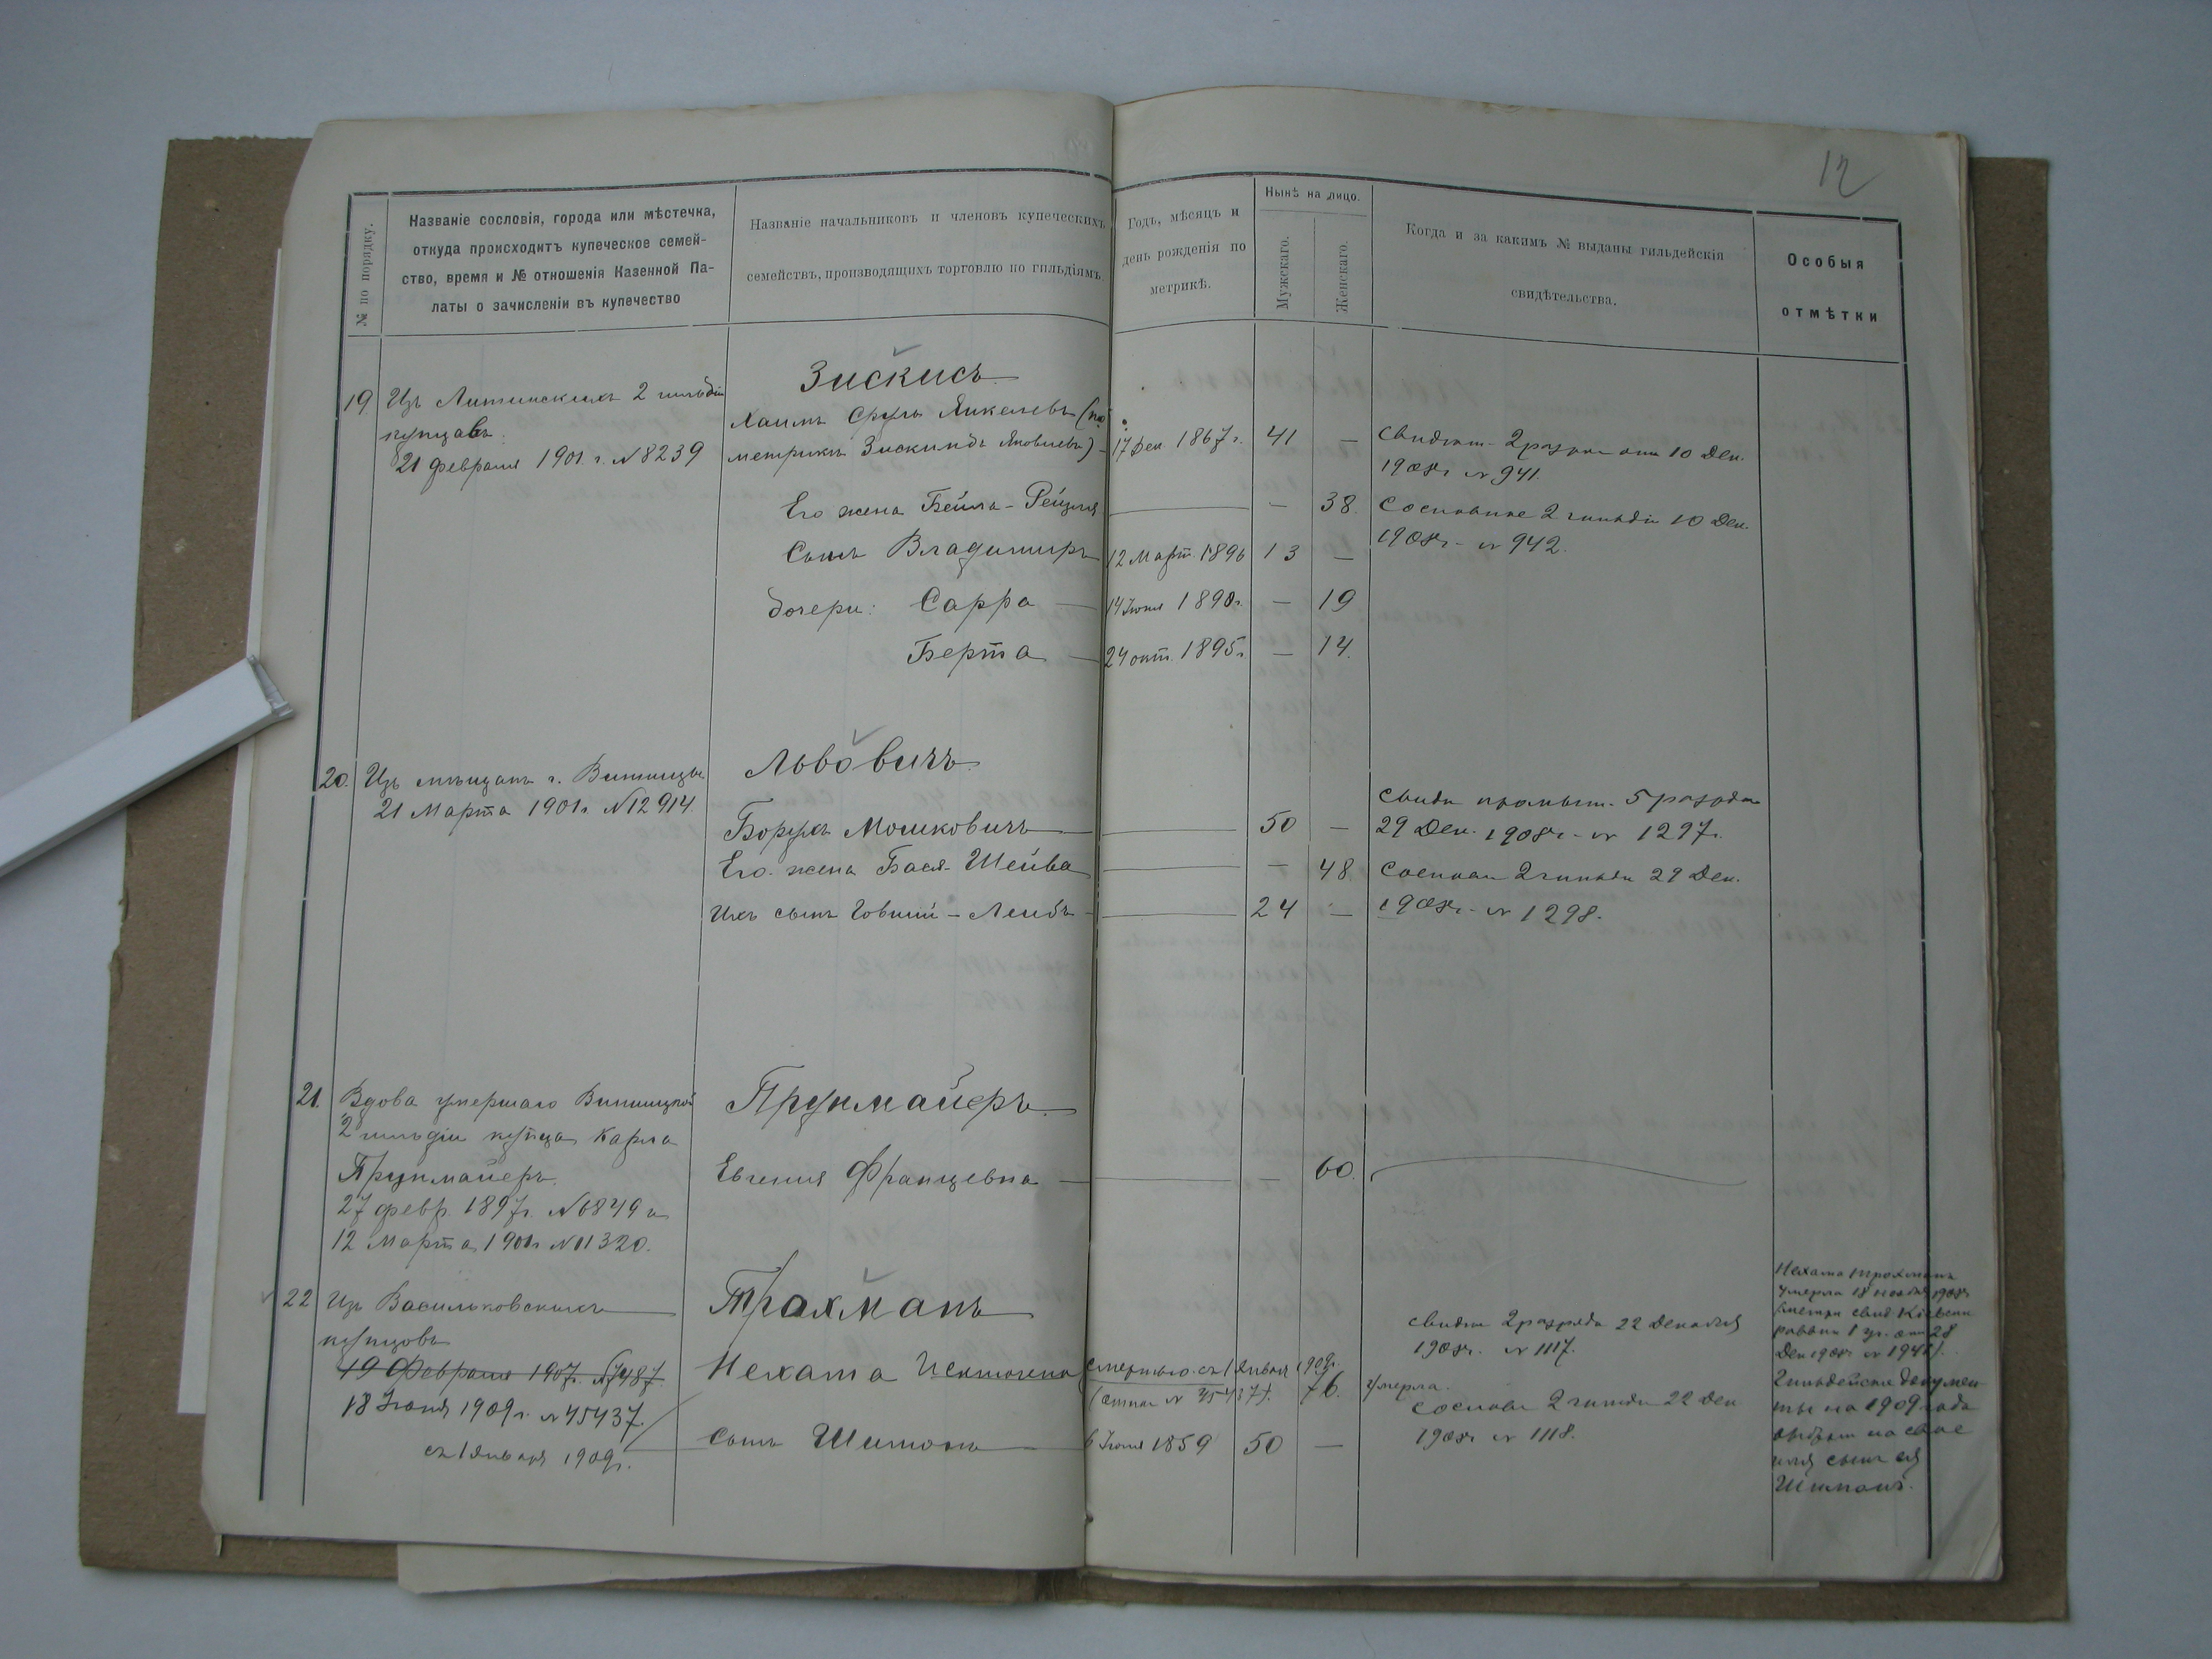 12
№ по порядку.
Названіе сословія, города или мѣстечка,
откуда происходитъ купеческое семей-
ство, время и № отношенія Казенной Па-
латы о зачисленіи въ купечество
Названіе начальниковъ и членовъ купеческихъ
семействъ, производящихъ торговлю по гильдіямъ.
Годъ, мѣсяцъ и
день рожденія по
метрикѣ.
Нынѣ на лицо.
Мужскаго.
Женскаго.
Когда и за какимъ № выданы гильдейскія
свидѣтельства.
Особыя
отмѣтки
Зискисъ
19. Изъ Литинскихъ 2 гильдіи
купцовъ
21 февраля 1901 г. № 8239
Хаимъ Сруль Янкелевъ (по
метрикѣ Зискиндъ Яковлевъ) 17 Дек 1867 г. 41 —
Свидѣт. 2 разряд отъ 10 Дек.
1908 г. № 941.
Его жена Бейла-Рейзля — 38.
Сословное 2 гильдіи 10 Дек.
1908 г. № 942.
Сынъ Владимиръ 12 Март. 1896 13 —
дочери: Сарра 14 Іюня 1890 г. — 19
Берта 24 окт. 1895 г. — 14.
Львовичъ
20. Изъ мѣщанъ г. Винницы
21 Марта 1901 г. № 12914.
Борухъ Мошковичъ 50 —
Свидѣ промысл. 5 разряда
29 Дек. 1908 г. № 1297.
Его жена Бася-Шейва — 48.
Сословн 2 гильди 29 Дек.
1908 г. № 1298.
Ихъ сынъ Іовшій-Лейбъ 24 —
21. Вдова умершаго Винницкой
2 гильдіи купца Карла
Прунмайеръ.
27 февр. 1897 г. № 6849 и
12 Марта 1901 г. № 11320.
Прунмайеръ
Евгенія Францевна — — 60.
22 Изъ Васильковскихъ
купцовъ
19 Февраля 1907 г. № 7487.
18 Іюня 1909 г. № 45437.
съ 1 Января 1909 г.
Трахманъ
Нехама
смертью съ 1 Января 1909 г.
(отнош № 45437). 76. умерла.
Сынъ Шимонъ 6 Іюня 1859 50 —
Свидѣт 2 разряда 22 Декабря
1908 г. № 1117.
Сословн 2 гильди 22 Дек
1908 г. № 1118.
Нехама Трахманъ
умерла 18 ноября 1908 г.
раввин отъ 28
Дек 1908 г.
Гильдейскіе докумен-
ты на 1909 года
на свое
имя сынъ ея
Шимонъ.